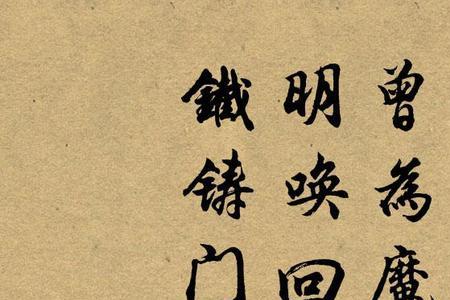 曾為魔
明唤回
鐵铸门